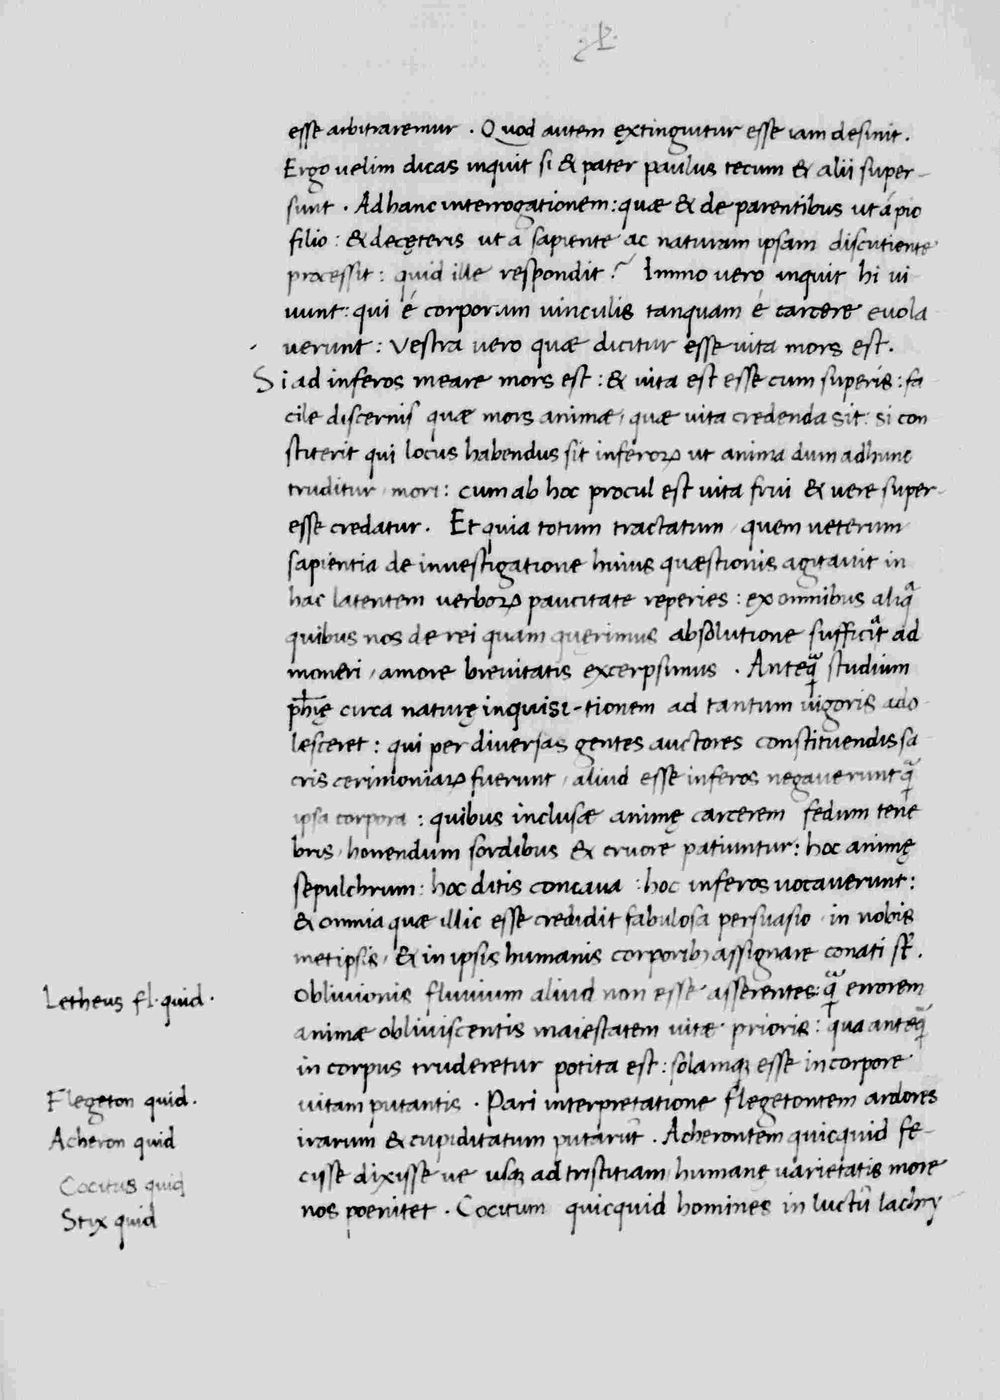 esse arbitraremur . Quod autem extinguitur esse iam desinit .
Ergo uelim dicas inquit si & pater paulus tecum & alii super-
sunt . Ad hanc interrogationem : quæ & de parentibus ut á pio
filio : & de cęteris ut a sapiente ac naturam ipsam discutiente
processit : quid ille respondit ? Immo vero inquit hi ui
uunt : qui é corporum uinculis tanquam é carcere euola
uerunt : Vestra uero quæ dicitur esse uita mors est .
Si ad inferos meare mors est : & uita est esse cum superis : fa-
cile discernis quæ mors animæ , quæ uita credenda sit : si con
stiterit qui locus habendus sit inferoꝝ ut anima dum ad hunc
truditur , mori : cum ab hoc procul est uita frui & uere super-
esse credatur . Et quia totum tractatum , quem ueterum
sapientia de inuestigatione huius quæstionis agitauit in
hac latentem uerboꝝ paucitate reperies : ex omnibus aliqͣ
quibus nos de rei quam querimus absolutione sufficiͣt ad
moneri , amore breuitatis excerpsimus . Anteqͣ̄ studium
ph̄ię circa naturę inquisi-tionem ad tantum uigoris ado-
lesceret : qui per diuersas gentes auctores constituendis sa-
cris cerimoniaꝝ fuerunt , aliud esse inferos negauerunt qͣ̄
ipsa corpora : quibus inclusæ animę carcerem fedum tene
bris , horrendum sordibus & cruore patiuntur : hoc animę
sepulchrum : hoc ditis concaua : hoc inferos uocauerunt :
& omnia quæ illic esse credidit fabulosa persuasio , in nobis
metipsis , & in ipsis humanis corporibꝫ assignare conati st̄ .
Obliuionis fluuium aliud non esse asserentes : qͣ̄ errorem
animæ obliuiscentis maiestatem uitæ prioris : qua anteqͣ̄
in corpus truderetur potita est : solamqꝫ esse in corpore
uitam putantis . Pari interpretatione flegetontem ardores
irarum & cupiditatum putarūt . Acherontem quicquid fe-
cisse dixisse ue usqꝫ ad tristitiam humane uarietatis more
nos poenitet . Cocitum quicquid homines in luctū lachry
Letheus fl. quid .
Flegeton quid .
Acheron quid
Cocitus quid
Stix quid